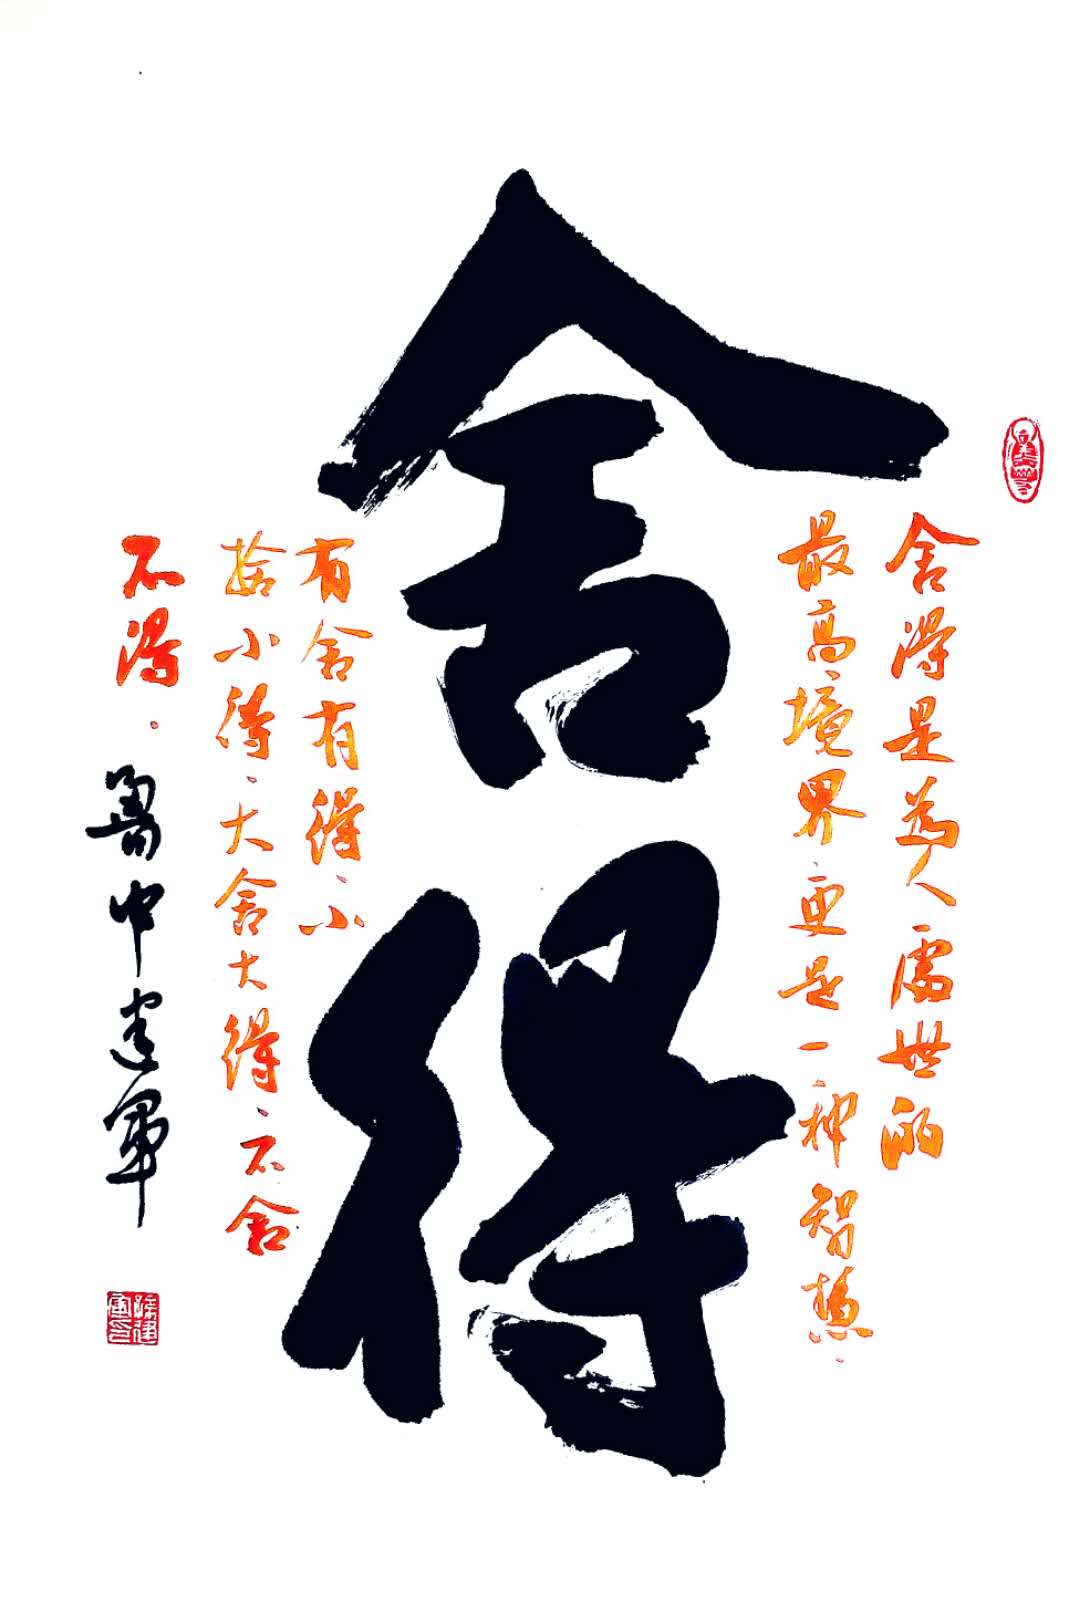 舍得是为人處世的
最高境界更是一种智慧
舍得
有舍有得、小
捨小得、大舍大得、不舍
不得.
魯中建軍